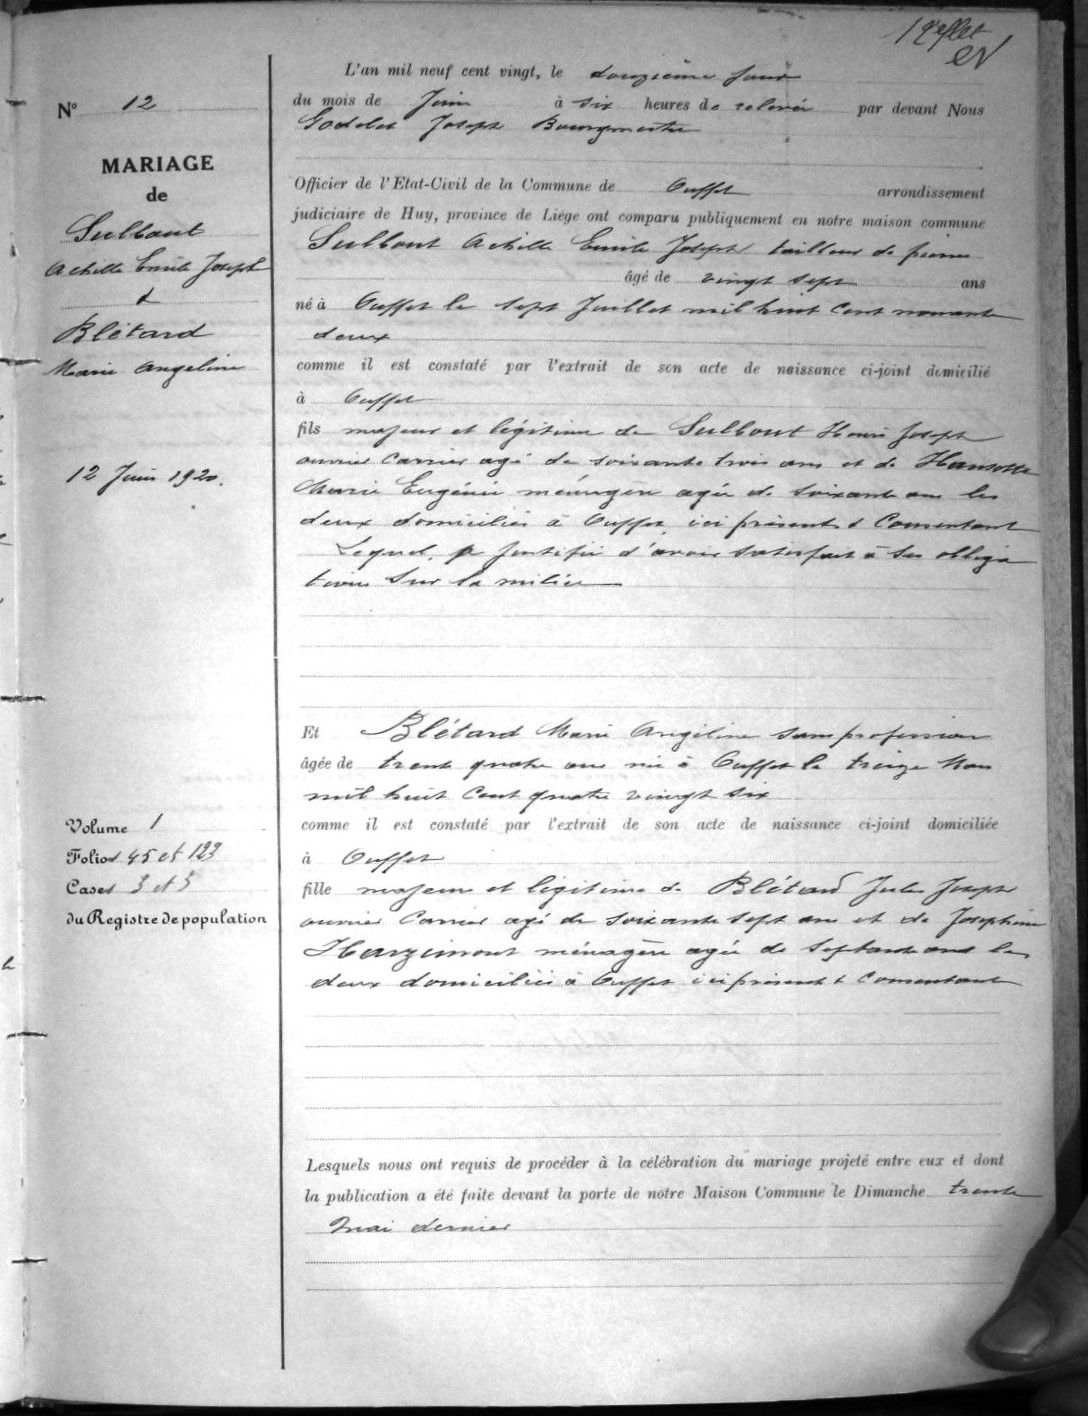 N° 12
MARIAGE
de
Sulbout
Achille Emile Joseph
&
Blétard
Marie Angeline
12 Juin 1920.
Volume 1
Folios 45 et 123
Cases 3 et 5
du Registre de population
L'an mil neuf cent vingt, le douzième jour
du mois de Juin à six heures de relevée par devant Nous
Godelet Joseph Bourgmestre
Officier de l'Etat-Civil de la Commune de Ouffet arrondissement
judiciaire de Huy, province de Liége ont comparu publiquement en notre maison commune
Sulbout Achille Emile Joseph tailleur de pierres
âgé de vingt sept ans
né à Ouffet le sept Juillet mil huit Cent nonante
deux
comme il est constaté par l'extrait de son acte de naissance ci-joint domicilié
à Ouffet
fils majeur et légitime de Sulbout Henri Joseph
ouvrier Carrier agé de soixante trois ans et de Hansotte
Marie Eugénie ménagère agée de soixante ans les
deux domiciliés à Ouffet, ici présents & Consentant
Lequel a justifié d'avoir satisfait à ses obliga
tions sur la milice
Et Blétard Marie Angéline sans profession
âgée de trente quatre ans née à Ouffet le treize Mars
mil huit Cent quatre vingt six
comme il est constaté par l'extrait de son acte de naissance ci-joint domiciliée
à Ouffet
fille majeure et légitime de Blétard Jules Joseph
ouvrier Carrier agé de soixante sept ans et de Josephine
Harzimont ménagère agée de septante ans les
deux domiciliés à Ouffet ici présent & Consentant
Lesquels nous ont requis de procéder à la célébration du mariage projeté entre eux et dont
la publication a été faite devant la porte de notre Maison Commune le Dimanche trente
Mai dernier